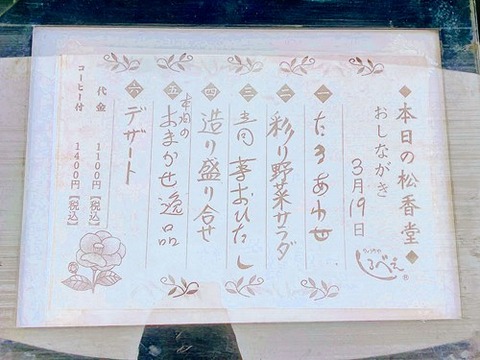 ◆本日の松香堂◆
おしながき
3月19日
一 たきあわせ
二 彩り野菜サラダ
三 青菜おひたし
四 造り盛り合せ
五 本日のおまかせ逸品
六 デザート
代金 1100円【税込】
コーヒー付 1400円【税込】
しるべえ®